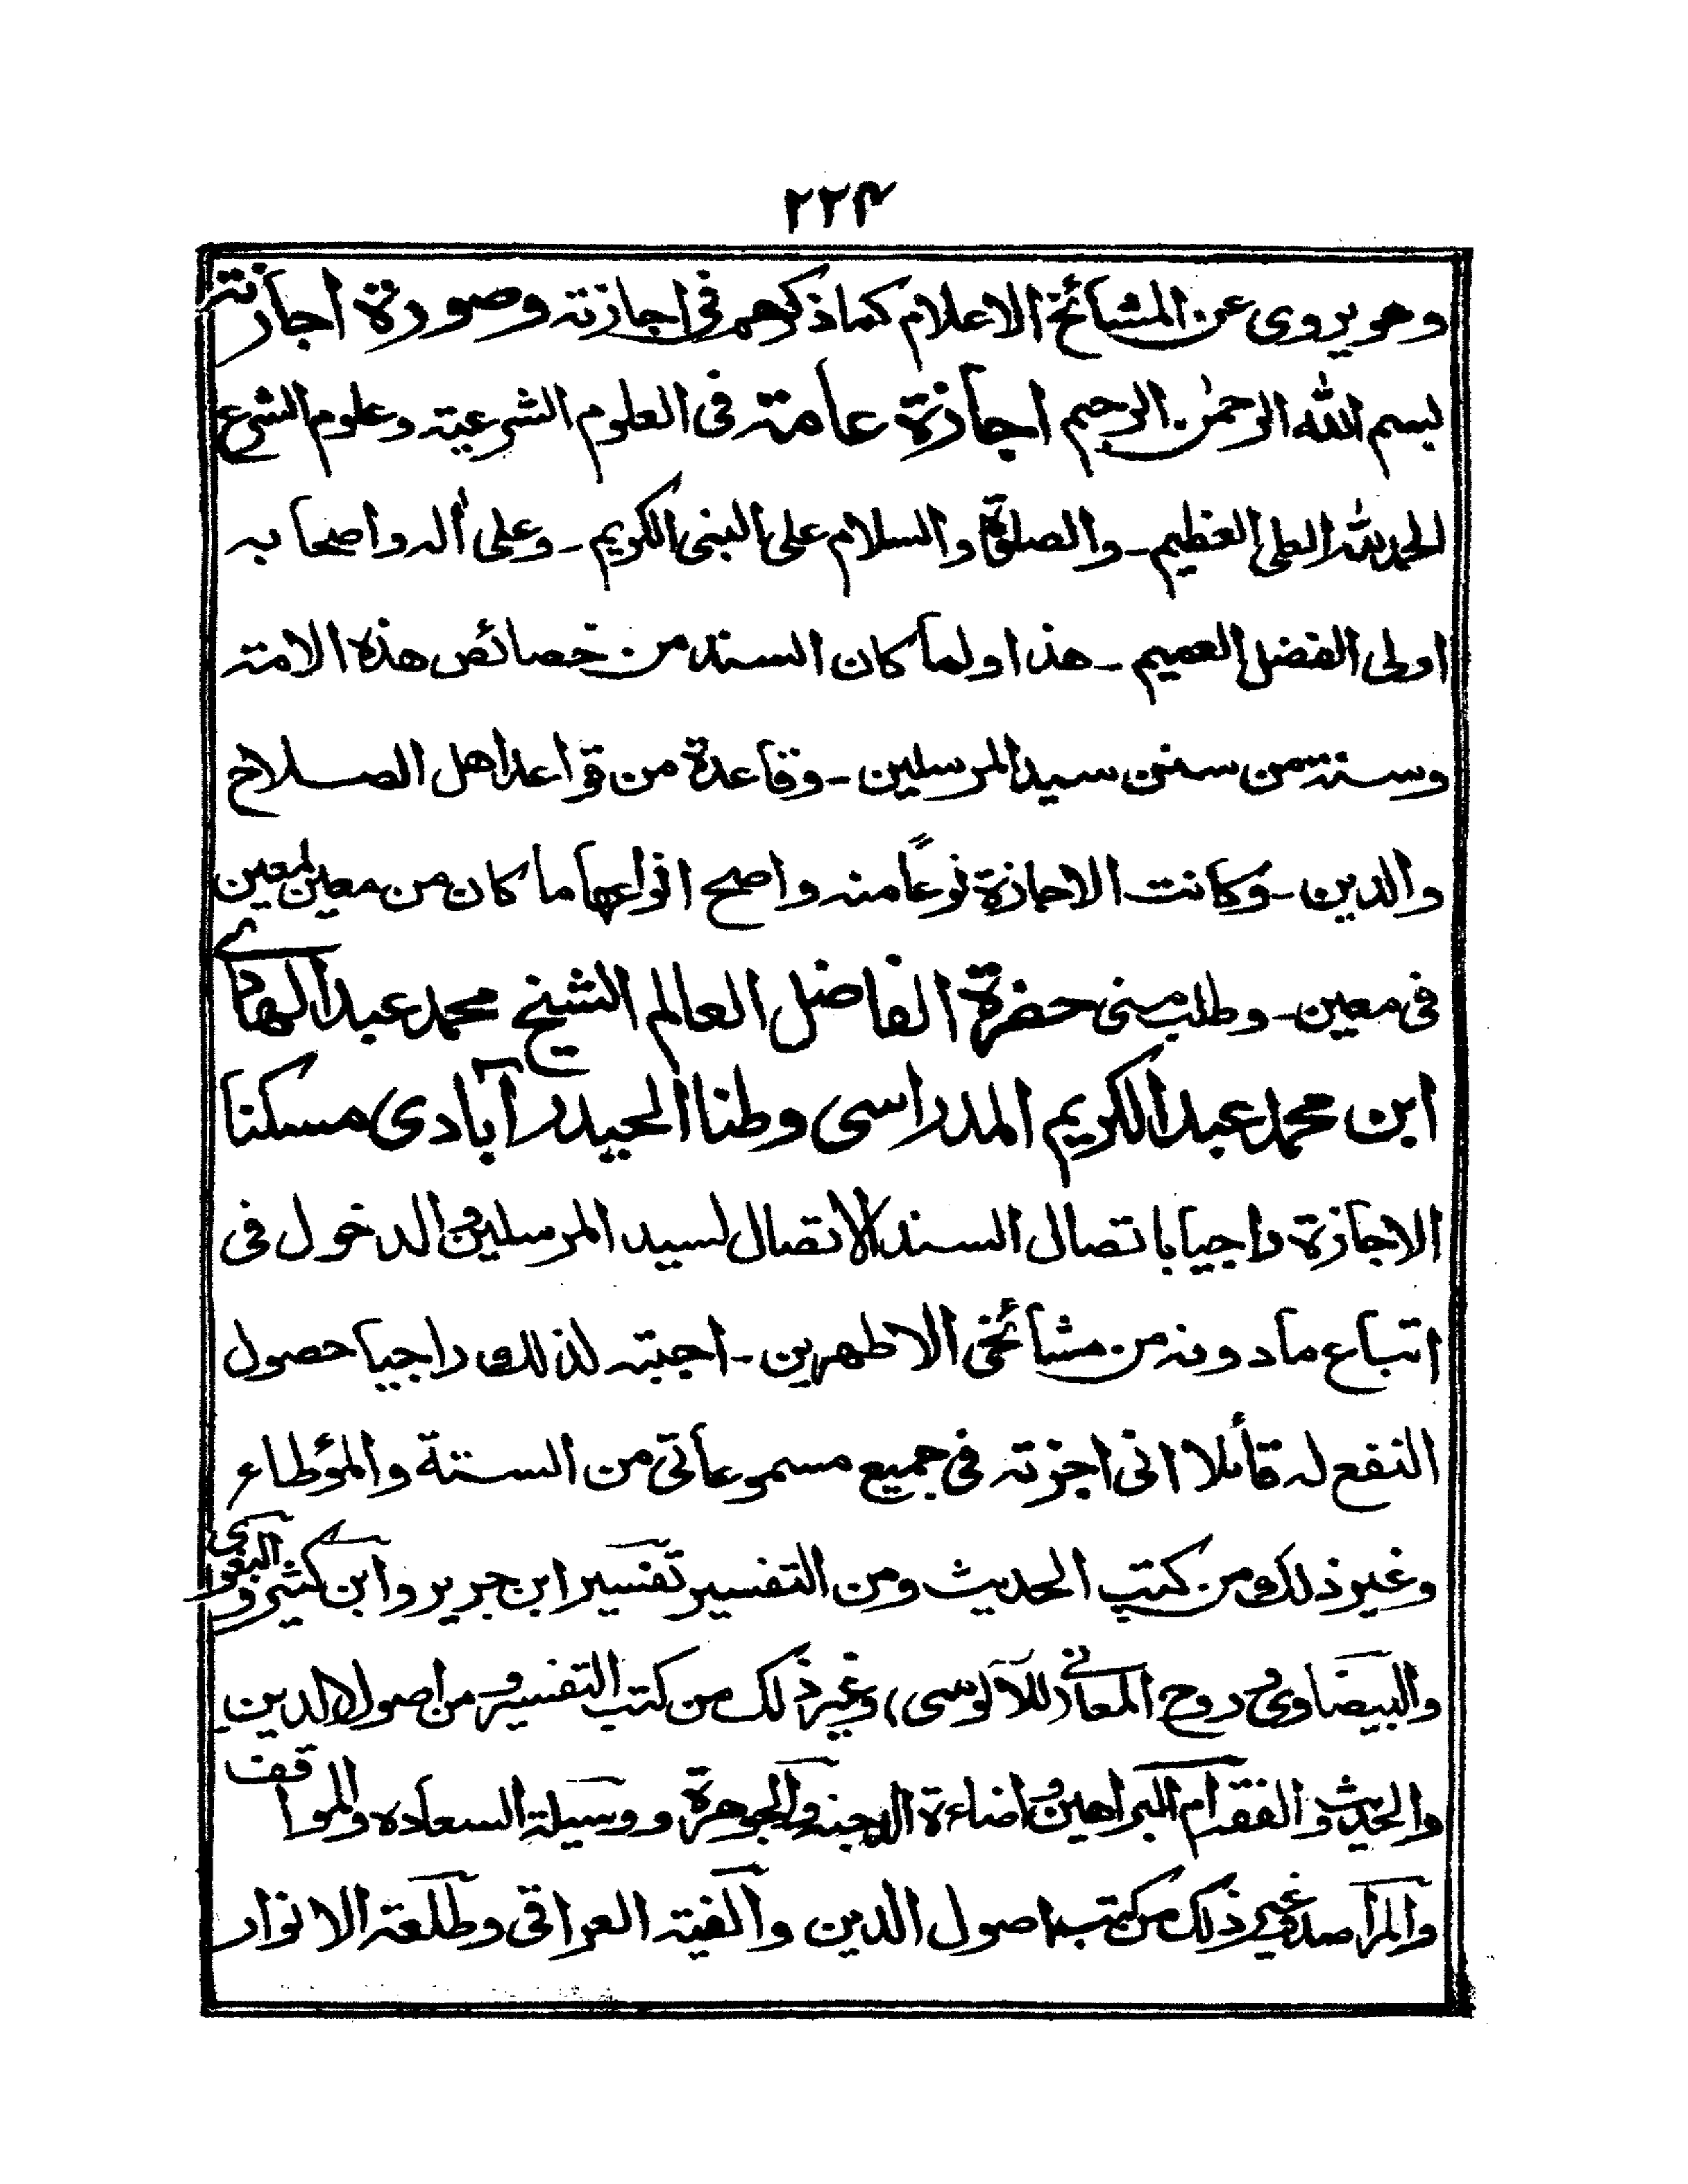 ۲۲۴
وهو يروى عن المشائخ الاعلام كما ذكرهم فى اجازته وصورة اجازته
بسم الله الرحمن الرحيم اجازة عامة فى العلوم الشرعية وعلوم الشرع
الحمد لله العلى العظيم ـ والصلوة والسلام على النبى الكريم ـ وعلى أله واصحابه
اولى الفضل العميم ـ هذا ولما كان السند من خصائص هذه الامة
وسنة من سنن سيد المرسلين ـ وقاعدة من قواعد اهل الصلاح
والدين ـ وكانت الاجازة نوعًا منه واصح انواعها ما كان من معين لمعين
فى معين ـ وطلب منى حضرة الفاضل العالم الشيخ محمد عبد الهادے
ابن محمد عبد الكريم المدراسى وطنا الحيدرآبادى مسكنا
الاجازة راجيا باتصال السند الاتصال لسيد المرسلين و الدخول فى
اتباع مادونه من مشائخى الاطهرين ـ اجبته لذلك راجيا حصول
النفع له قائلا انى اجزته فى جميع مسموعاتى من الستة والمؤطاء
وغير ذلك من كتب الحديث ومن التفسير تفسير ابن جرير وابن كثير و البغوى
والبيضاوى و روح المعانے (للآلوسى) وغير ذلك من كتب التفسير و من اصول الدين
والحديث والفقه ام البراهين و اضاءة الدجنه والجوهرة و وسيلة السعاده والمواقف
والمراصد وغير ذلك من كتب اصول الدين والفية العراقى وطلعة الانوار